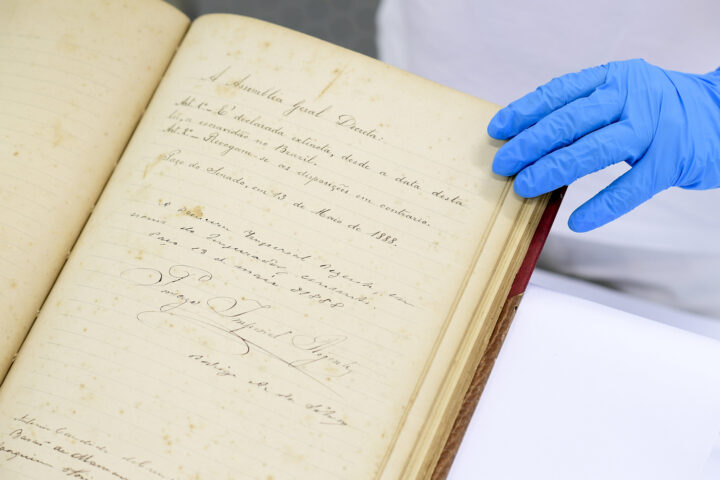 A Assemblea Geral Decreta:
Art. 1º - É declarada extincta, desde a data desta
lei, a escravidão no Brazil.
Art. 2º - Revogam-se as disposições em contrario.
Paço do Senado, em 13 de Maio de 1888.
A Princeza Imperial Regente, em
nome do Imperador, consente.
Paço 13 de maio de 1888
Princeza Imperial Regente
Rodrigo A. da Silva
Antonio Candido
Barão de Mamanguape
Joaquim